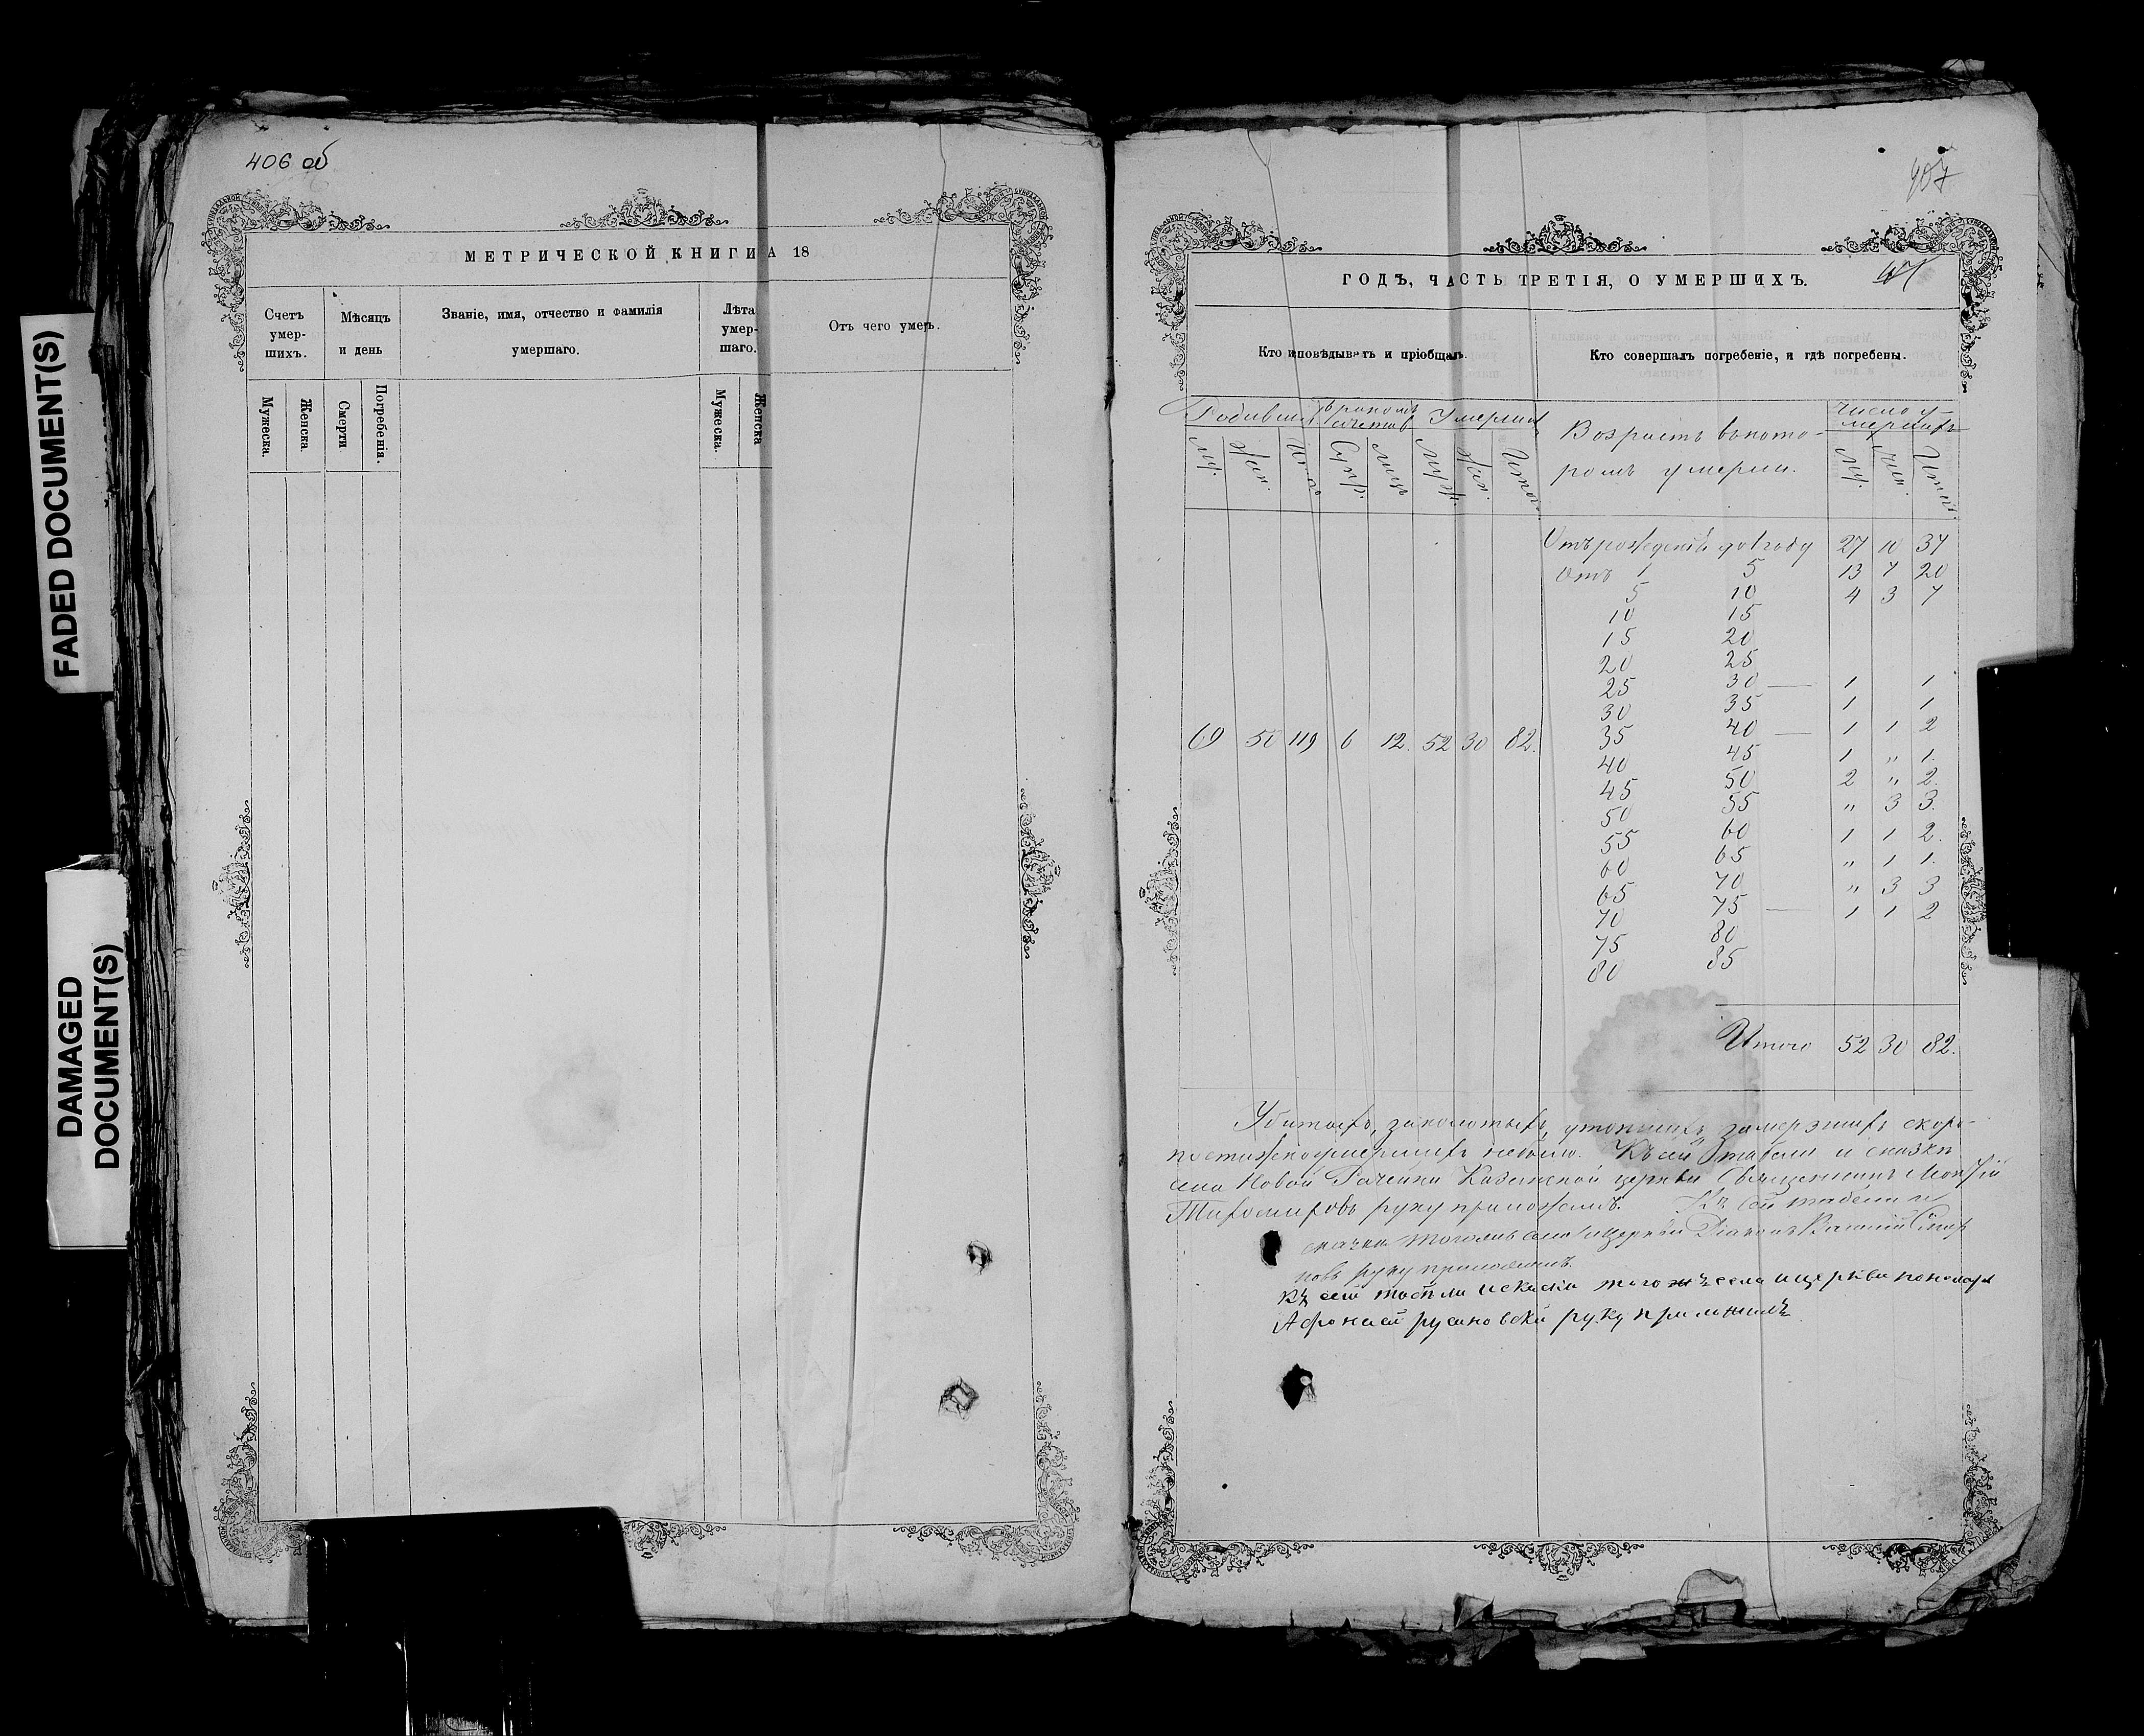 FADED DOCUMENT(S)
DAMAGED
DOCUMENT(S)
406 об
МЕТРИЧЕСКОЙ КНИГИ НА 18
Счетъ умер- шихъ.
Мѣсяцъ и день
Званіе, имя, отчество и фамилія умершаго.
Лѣта умер- шаго.
Отъ чего умеръ.
Мужеска.
Женска
Смерти
Погребенія.
Мужеска.
Женска
407
ГОДЪ, ЧАСТЬ ТРЕТІЯ, О УМЕРШИХЪ.
Кто исповѣдывалъ и пріобщалъ.
Кто совершалъ погребеніе, и гдѣ погребены.
Возрастъ въкото-
ромъ умерли.
число у-
мершихъ
Отъ рожденія до 1 году 27 10 37
Отъ 1 5 13 7 20
5 10 4 3 7
10 15
15 20
20 25
25 30 — 1 1
30 35 1 1
35 40 — 1 1 2
40 45 1 " 1.
45 50 2 " 2.
50 55 " 3 3.
55 60 1 1 2.
60 65 " 1 1.
65 70 " 3 3
70 75 — 1 1 2
75 80
80 85
69 50 119 6 12. 52 30 82.
Итого 52 30 82.
Убитыхъ, заколотыхъ, утопшихъ, замерзшихъ скоро-
постижноумершихъ небыло. Къ сей табели и сказки
села Новой Казанской церкви Священникъ
Тихомировъ руку приложилъ. Къ сей табели и
сказки тогожъ села и церкви Діаконъ Василій
руку приложилъ
Къ сей тогожъ села и церкви пономарь
Афонасей русановскій руку приложилъ